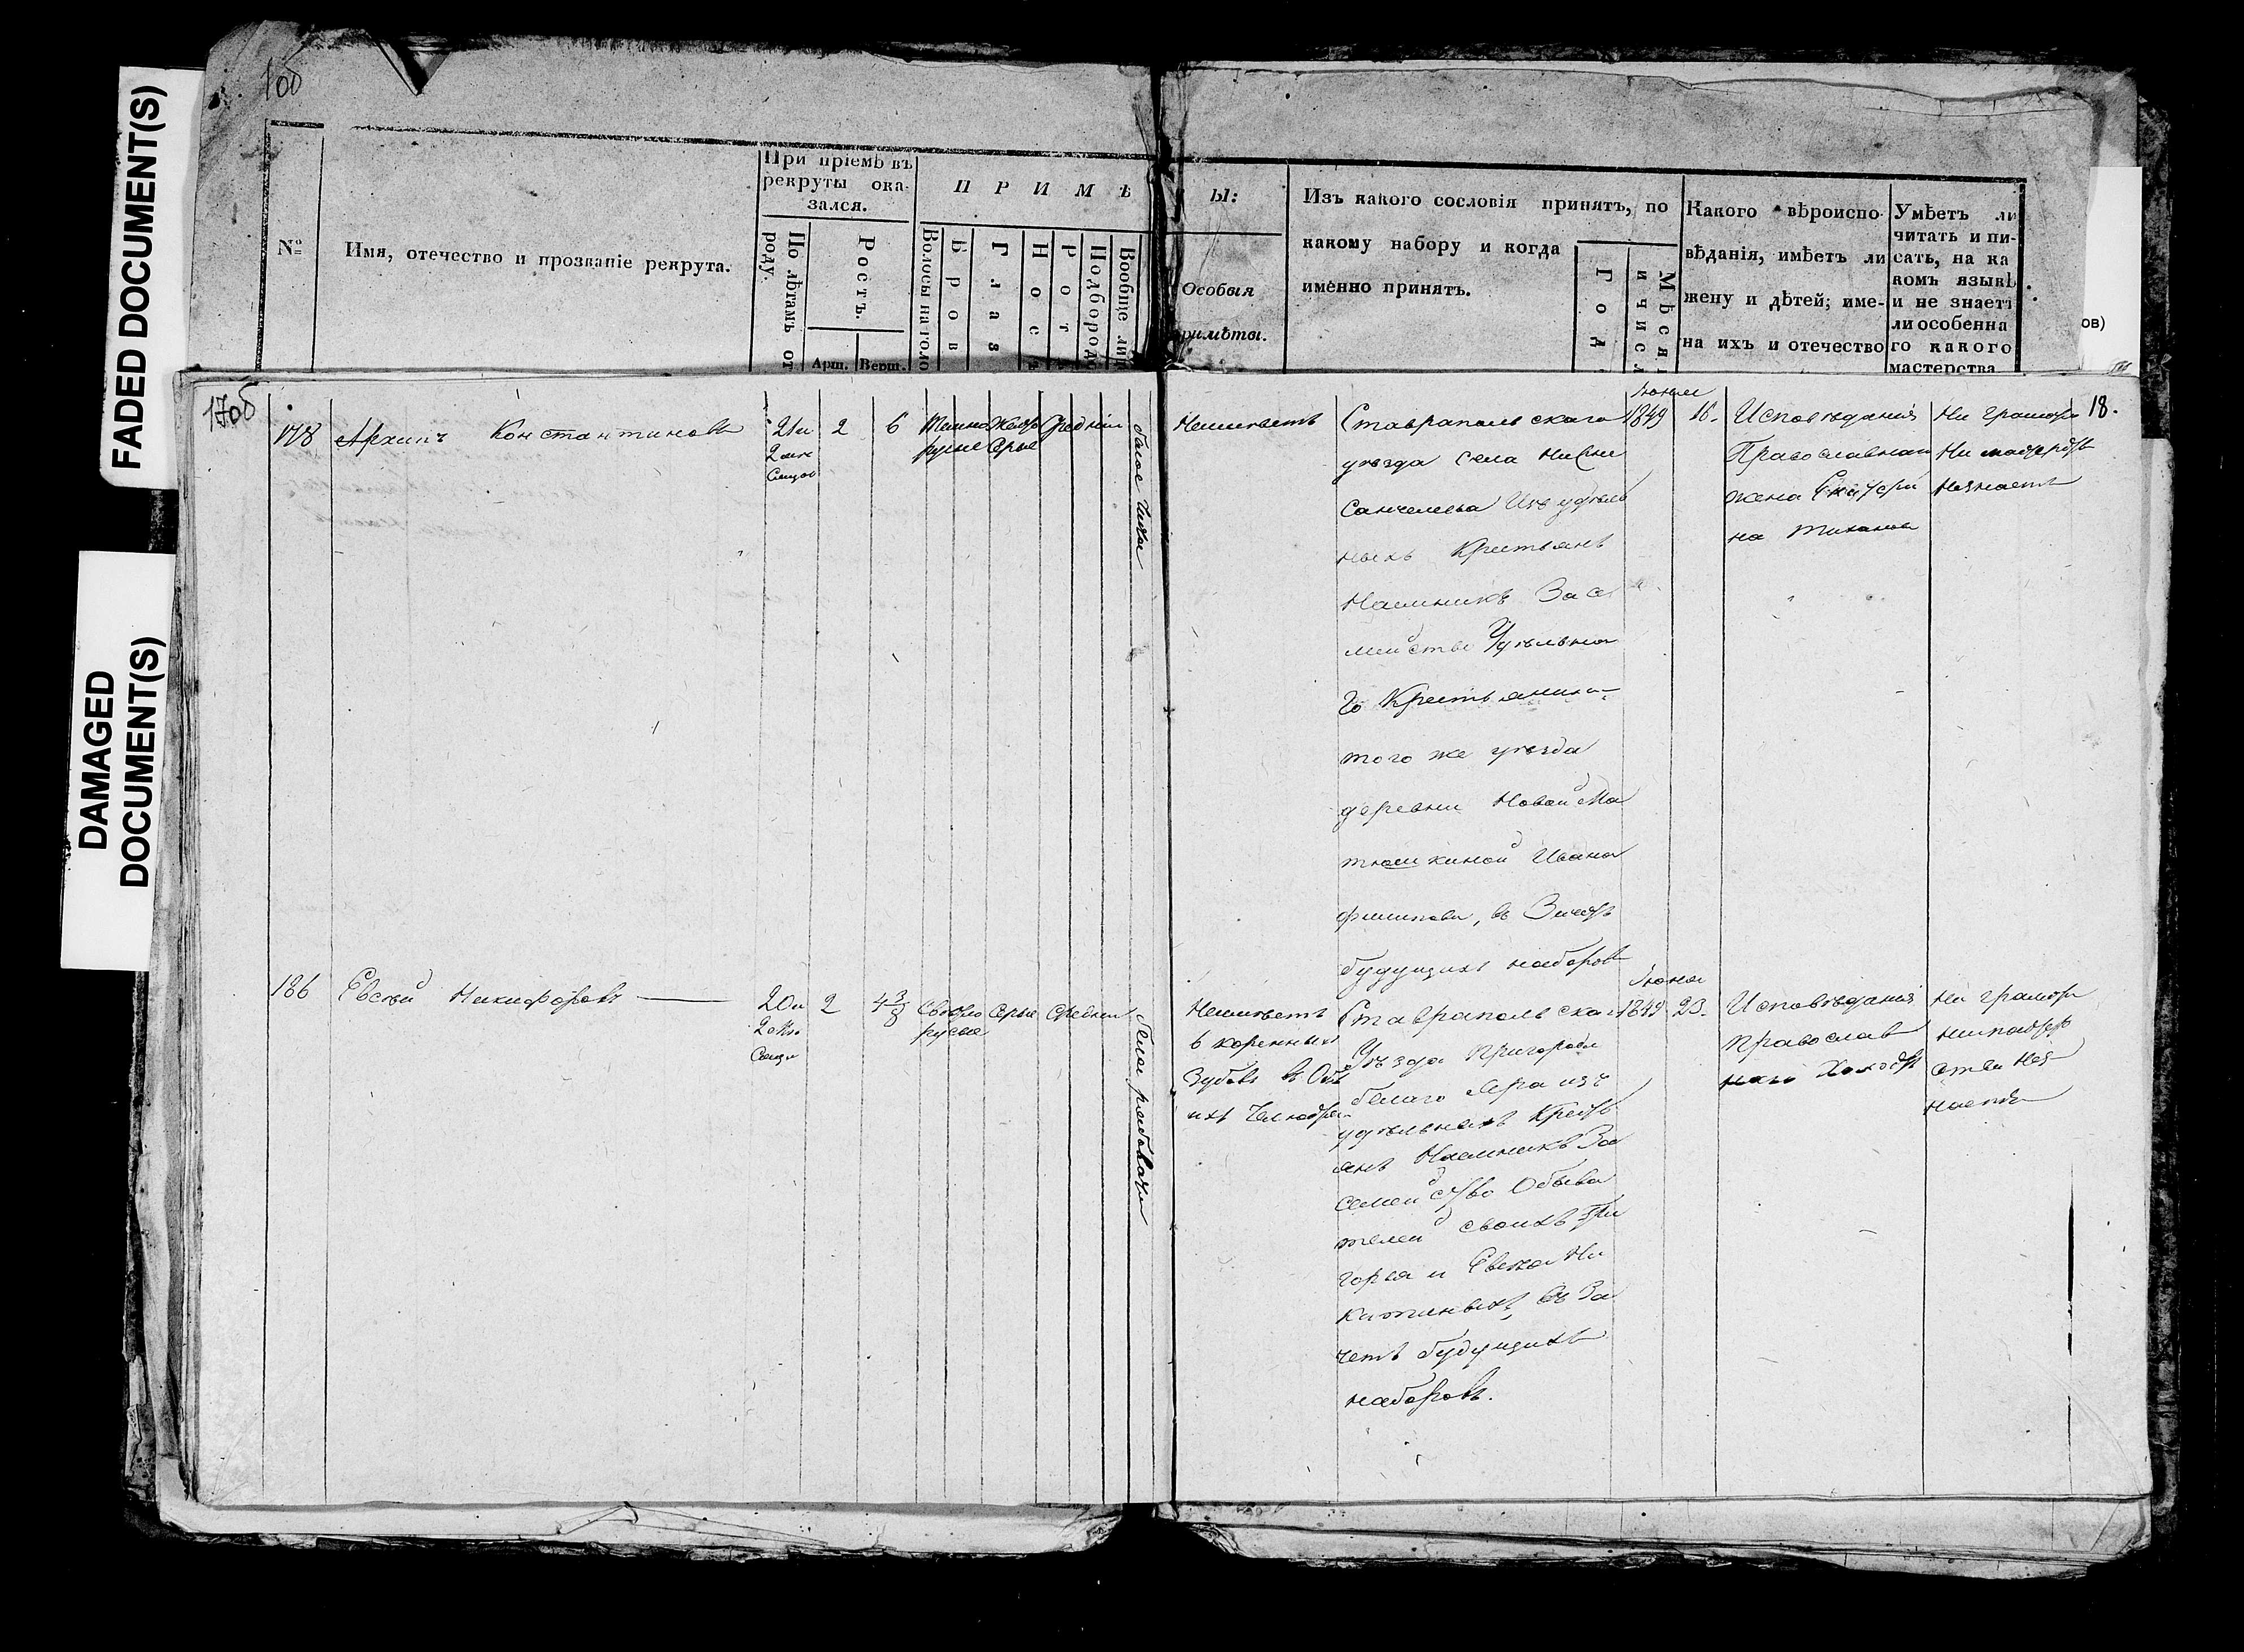 FADED DOCUMENT(S)
DAMAGED
DOCUMENT(S)
1об
№
Имя, отечество и прозваніе рекрута.
При пріемѣ въ
рекруты ока-
зался.
По лѣтамъ от
роду.
Ростъ.
Арш.
Верш.
ПРИМѢ
Волосы на голо
Бров
Глаз
Нос
Рот
Подбородо
Вообще лиц
ы:
Особыя
римѣты.
Изъ какого сословія принятъ, по
какому набору и когда
именно принятъ.
Год
Мѣся
и чис
Какого вѣроиспо-
вѣданія, имѣетъ ли
жену и дѣтей; име-
на ихъ и отечество
Умѣетъ ли
читать и пи-
сать, на ка
комъ языкѣ
и не знаетъ
ли особенна
го какого
мастерства
ов)
17об
178
Архипъ Константиновъ
21 и
2
6
Темно
русые
Серые
Средній
Лицо чистое
Неимеетъ
Ставропольскаго
уѣзда села
Санчелеева Изъ удѣль
ныхъ Крестьянъ
Наемникъ За се
мейство Удѣльна
го Крестьянина
того же уѣзда
деревни Новой Ма
тюшкиной Ивана
Филипова, въ Зачетъ
будущихъ наборовъ
Іюня
1849
16.
Исповѣданія
Православнаго
жена Екатери
на
Ни грамоты
Ни мастерства
Незнаетъ
18.
186
Евсѣй Никифоровъ
20 и
2
4 3/8
Светло
русые
Серые
Средній
Неимѣетъ
6 коренныхъ
Зубовъ въ Обѣ
ихъ Челюстях
Ставропольскаго
Уѣзда Пригорода
белаго Яра изъ
удѣльныхъ Кресть
янъ Наемникъ За
семейство Обыва
телей своихъ Гри
горья и Евсея Ни
китиныхъ, Въ За
четъ будущихъ
наборовъ.
Іюня
1849
23.
Исповѣданія
Православ
наго Холостъ
Ни грамоты
нимастер
ства Нез
наетъ